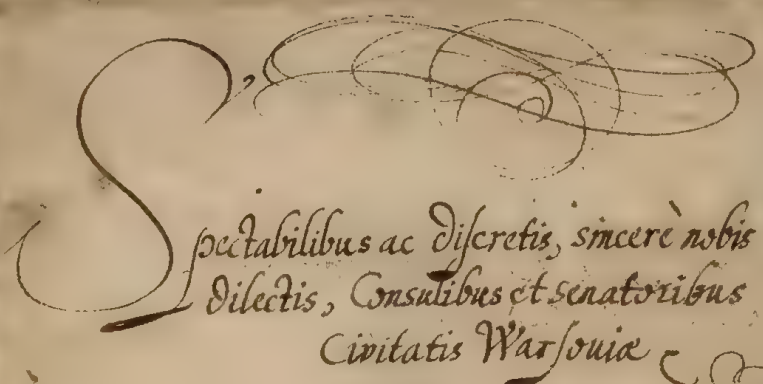 Spectabilibus ac discretis, sincerè nobis
dilectis, Consulibus et senatoribus
Civitatis Warsoviæ